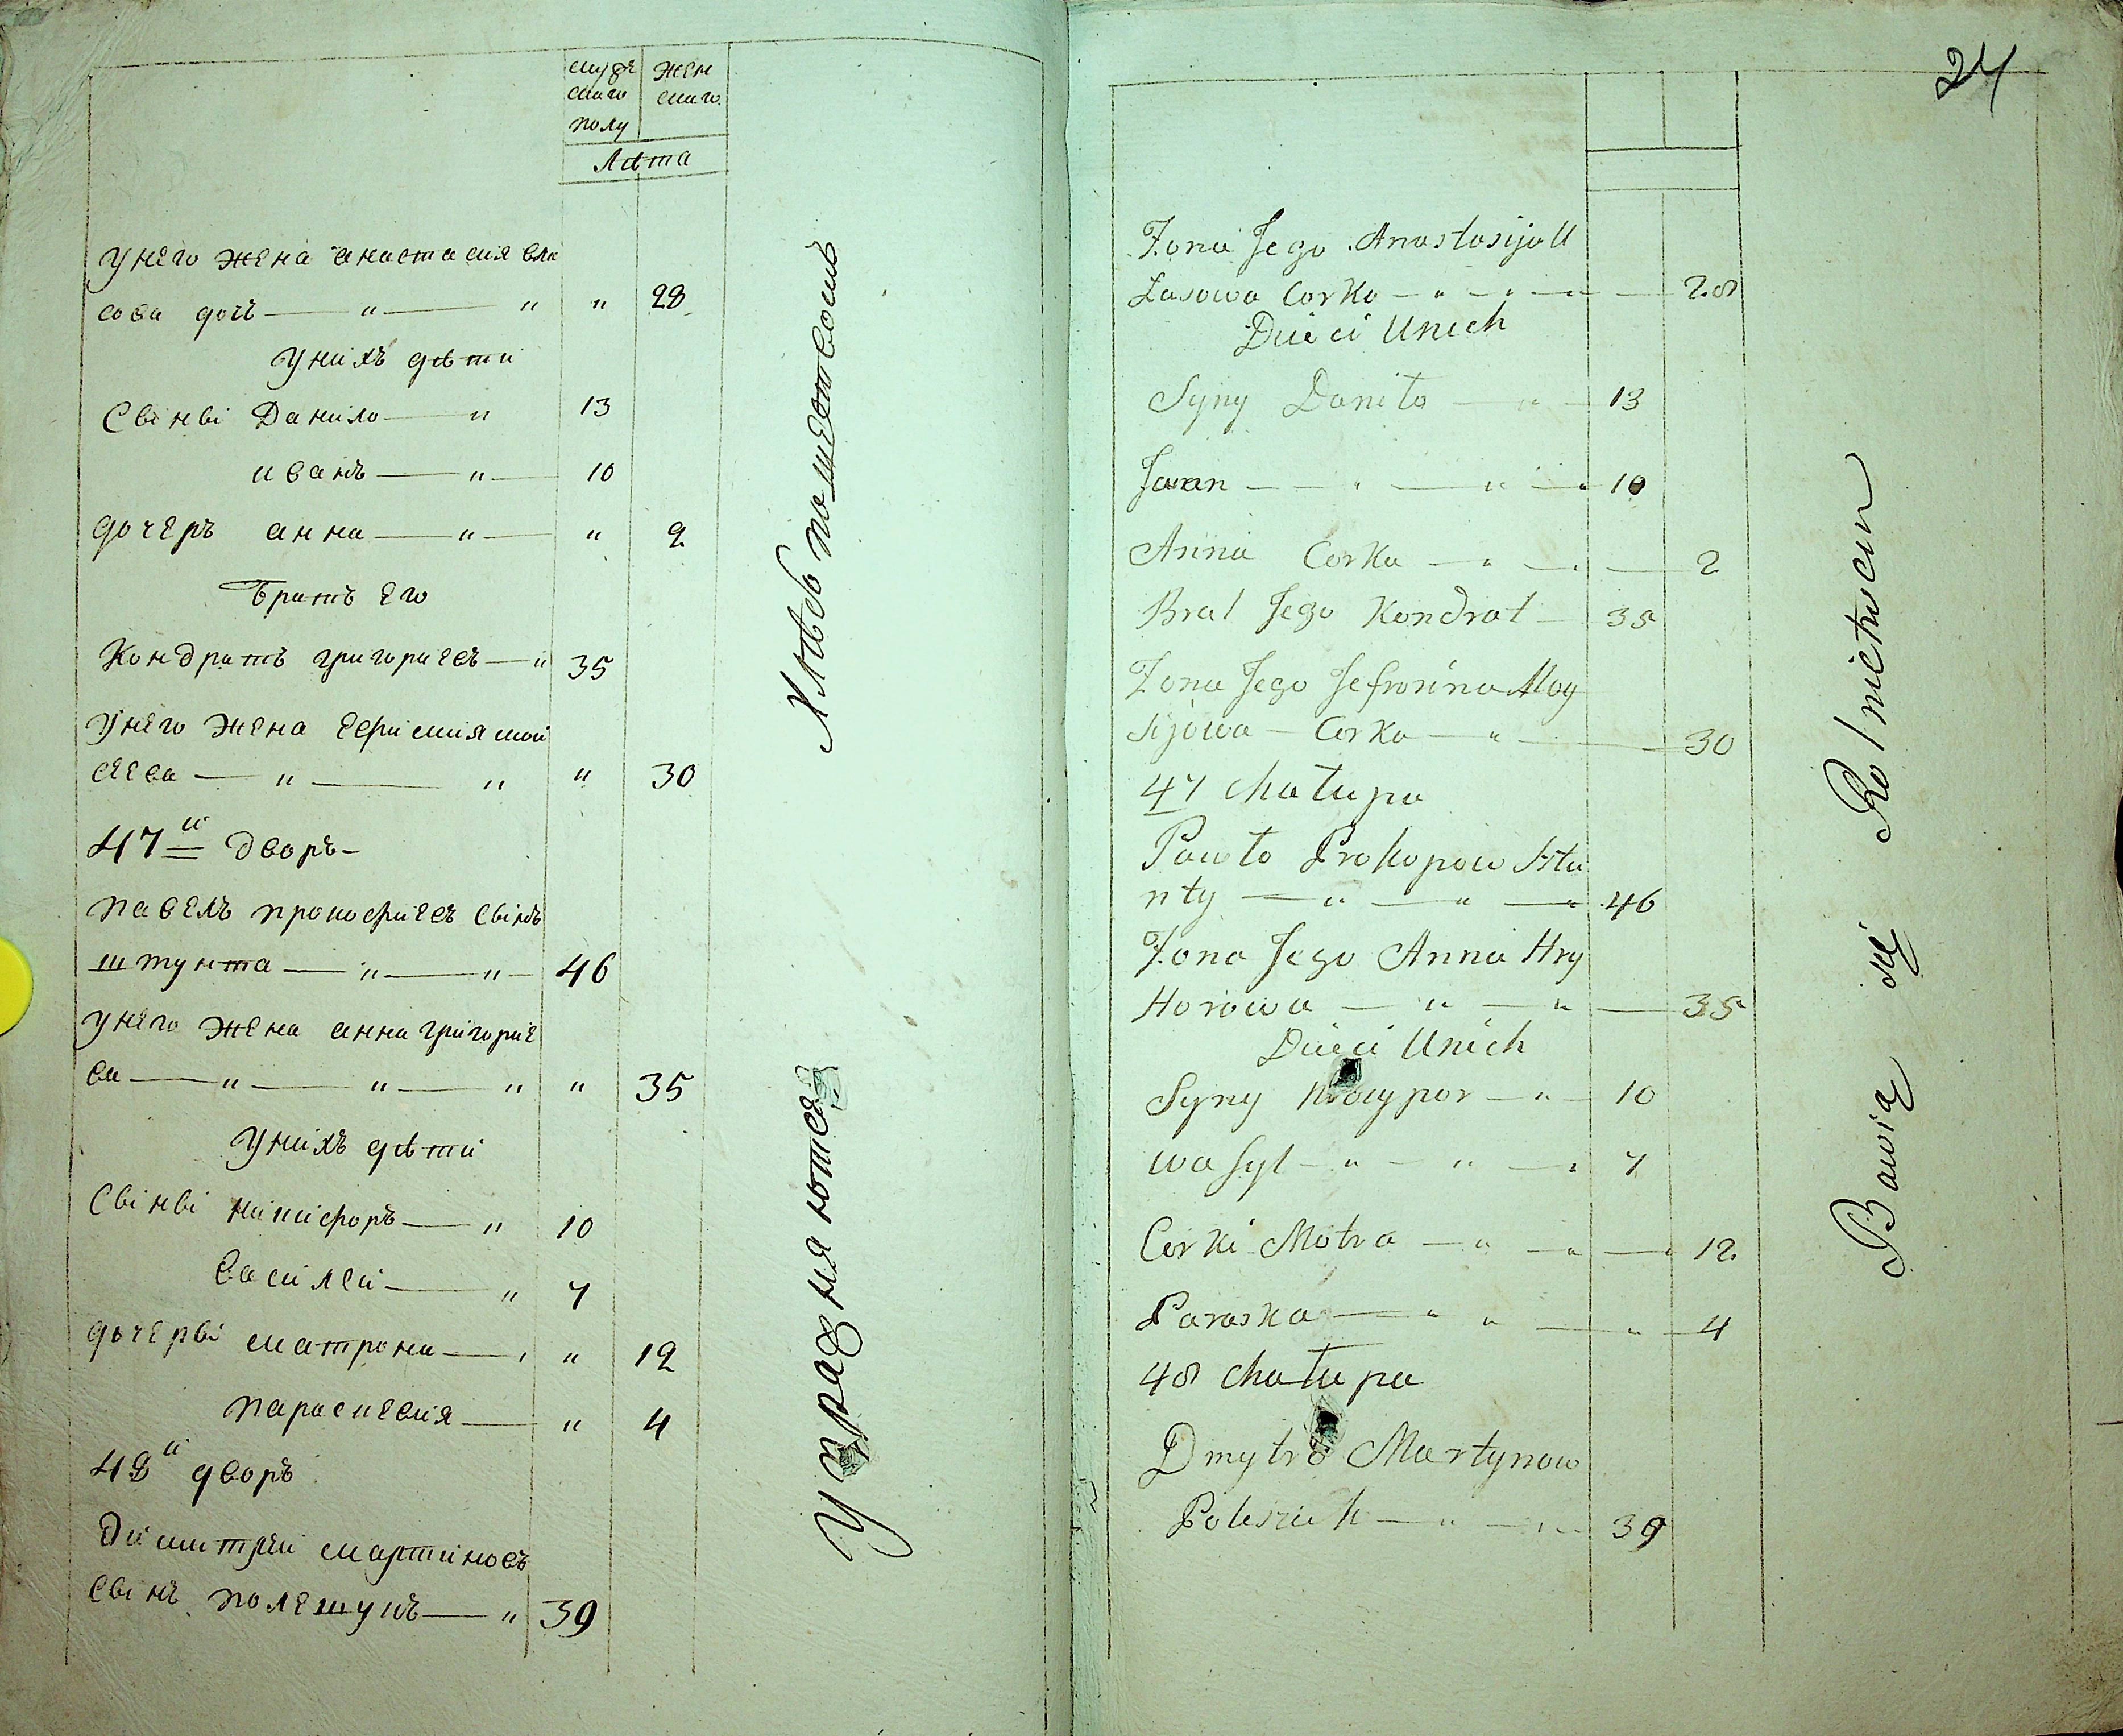 муже жен
скаго скаго
полу
Лѣта
унего жена анастасия вла
сова дочъ — „ — „ „ 28
унихъ дѣти
Сыны Данило — „ 13
иванъ — „ — 10
дочеръ анна — „ — „ 2
Братъ Его
Кондратъ григориевъ — „ 35
унего жена
сеева — „ — „ „ 30
47й дворъ —
павелъ прокофиевъ сынъ
штунта — „ — „ — 46
унего жена анна григорие
ва — „ — „ — „ „ 35
унихъ дѣти
Сыны никифоръ — „ 10
василей — „ 7
дочеры матрона — „ „ 12
параскевия — „ 4
48й дворъ
Димитрий мартиновъ
сынъ полешукъ — „ 39
Хлѣбопашествомъ
упражняются
24
Żona Jego Anastasija U
Łasowa Corka — „ — „ — 28
Dzieci Unich
Syny Daniło — „ — 13
Iwan — „ — „ — 10
Anna Corka — „ — 2
Brat Jego Kondrat — 35
Żona Jego Jefrosina Moy
sijowa — Corka — „ — 30
47 chałupa
Pawło Prokopow Sztu
nty — „ — „ — 46
Żona Jego Anna Hry
Horowa — „ — „ — 35
Dzieci Unich
Syny — „ — 10
wasyl — „ — „ — 7
Corki Motra — „ — „ — 12
Paraska — „ „ — „ — 4
48 chałupa
Dmytro Martynow
Poleszuk — „ — „ 39
Bawią się Rolnictwem